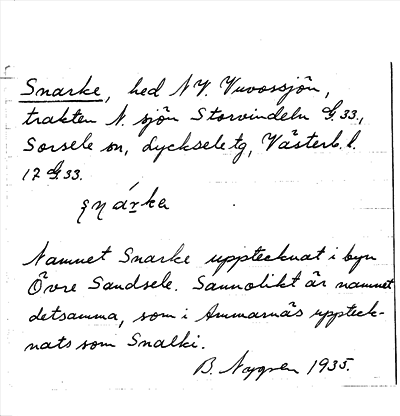 Snarke, hed NV. Vuvossjön,
trakten N. sjön Storvindeln G.33.,
Sorsele sn, Lycksele tg, Västerb. l.
12 G.33.
snárka
Namnet Snarke upptecknat i byn
Övre Sandsele. Sannolikt är namnet
detsamma, som i Ammarnäs uppteck-
nats som Snalki.
B. Nygren 1935.